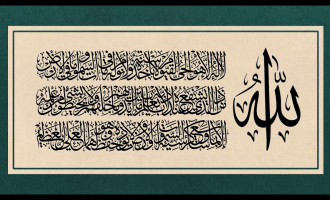 الله
الله لا إله إلا هو الحي القيوم لا تأخذه سنة ولا نوم له ما في السموات وما في الأرض
من ذا الذي يشفع عنده إلا بإذنه يعلم ما بين أيديهم وما خلفهم ولا يحيطون بشيء من علمه
إلا بما شاء وسع كرسيه السموات والأرض ولا يؤده حفظهما وهو العلي العظيم